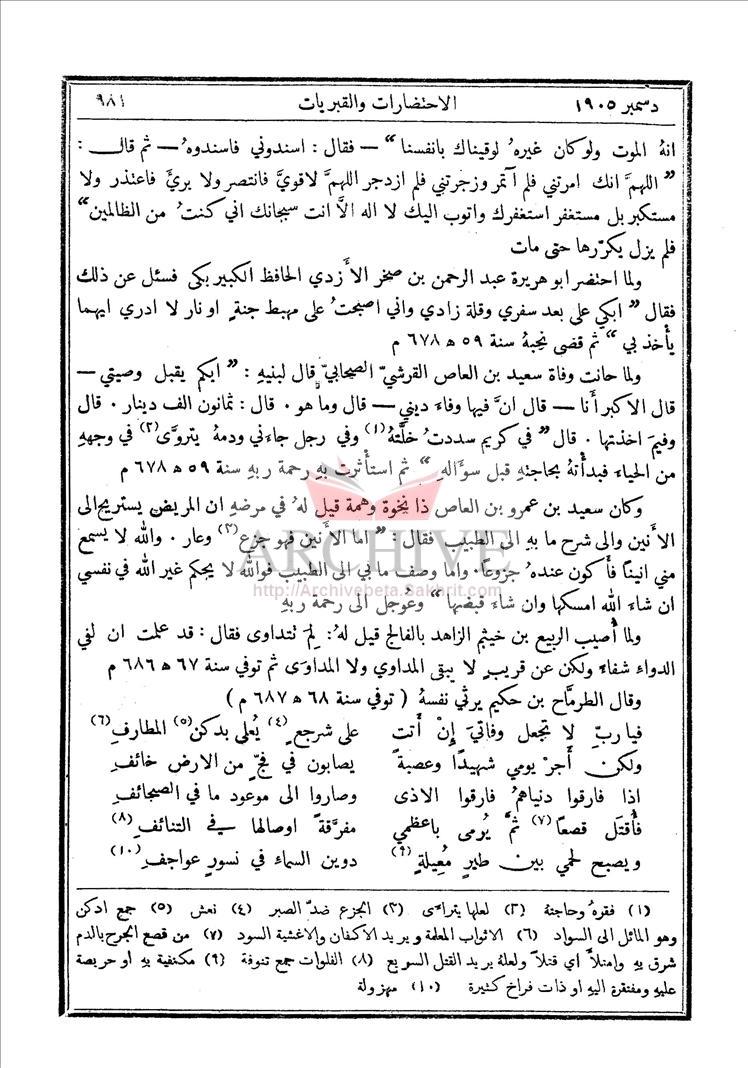 دسمبر ١٩٠٥ الاحتضارات والقبريات ٩٨١
انهُ الموت ولوكان غيرهُ لوقيناك بانفسنا“ — فقال : اسندوني فاسندوهُ — ثم قال :
” اللهمَّ انك امرتني فلم آتمر وزجرتني فلم ازدجر اللهمَّ لاقويَّ فانتصر ولا بريَّ فاعتذر ولا
مستكبر بل مستغفر استغفرك واتوب اليك لا اله الاَّ انت سبحانك اني كنتُ من الظالمين“
فلم يزل يكرّرها حتى مات
ولما احتضر ابو هريرة عبد الرحمن بن صخر الأزدي الحافظ الكبير بكى فسئل عن ذلك
فقال ” ابكي على بعد سفري وقلة زادي واني اصبحتُ على مهبط جنةٍ او نار لا ادري ايهما
يأخذ بي“ ثم قضى نحبهُ سنة ٥٩ ھ ٦٧٨ م
ولما حانت وفاة سعيد بن العاص القرشيّ الصحابيّ قال لبنيهِ : ” ايكم يقبل وصيتي —
قال الاكبر أنا — قال انَّ فيها وفاء ديني — قال وما هو ٠ قال : ثمانون الف دينار ٠ قال
وفيمَ اخذتها ٠ قال ” في كريم سددتُ خلَّتهُ (١) وفي رجل جاءني ودمهُ يتروَّى (٢) في وجههِ
من الحياء فبدأتهُ بحاجتهِ قبل سوَّالهِ“ ثم استأثرت بهِ رحمة ربهِ سنة ٥٩ ھ ٦٧٨ م
وكان سعيد بن عمرو بن العاص ذا نخوة وهمة قيل لهُ في مرضهِ ان المريض يستريح الى
الأنين والى شرح ما بهِ الى الطبيب فقال : ” اما الأنين فهو جزع (٣) وعار ٠ والله لا يسمع
مني انينًا فأكون عندهُ جزوعًا ٠ واما وصف ما بي الى الطبيب فوالله لا يحكم غير الله في نفسي
ان شاء الله امسكها وان شاء قبضها“ وعُوجل الى رحمة ربهِ
ARCHIVE
http://Archivebeta.Sakhrit.com
ولما أصيب الربيع بن خيثم الزاهد بالفالج قيل لهُ : لِمَ تتداوى فقال : قد علمت ان لفي
الدواء شفاء ولكن عن قريبٍ لا يبقى المداوي ولا المداوَى ثم توفي سنة ٦٧ ھ ٦٨٦ م
وقال الطرمَّاح بن حكيم يرثي نفسهُ ( توفي سنة ٦٨ ھ ٦٨٧ م )
فيا ربِّ لا تجعل وفاتيَ إنْ أتت على شرجعٍ (٤) يُعلى بدكن (٥) المطارفِ (٦)
ولكن أجرْ يومي شهيدًا وعصبةً يصابون في فجٍّ من الارض خائفِ
اذا فارقوا دنياهمُ فارقوا الاذى وصاروا الى موعود ما في الصحائفِ
فأقتل قصعًا (٧) ثمَّ يُرمى باعظمي مفرَّقةً اوصالها في التنائفِ (٨)
ويصبح لحمي بين طيرٍ مُعِيلةٍ (٩) دوين السماء في نسورٍ عواجفِ (١٠)
(١) فقرهُ وحاجتهُ (٢) لعلها يتراءى (٣) الجزع ضدّ الصبر (٤) نعش (٥) جمع ادكن
وهو المائل الى السواد (٦) الاثواب المعلمة ويريد الاكفان والاغشية السود (٧) من قصع الجرح بالدم
شرق بهِ وامتلأ اي قتلاً ولعلهُ يريد القتل السريع (٨) الفلوات جمع تنوفة (٩) مكتفية بهِ او حريصة
عليهِ ومفتقرة اليهِ او ذات فراخ كثيرة (١٠) مهزولة